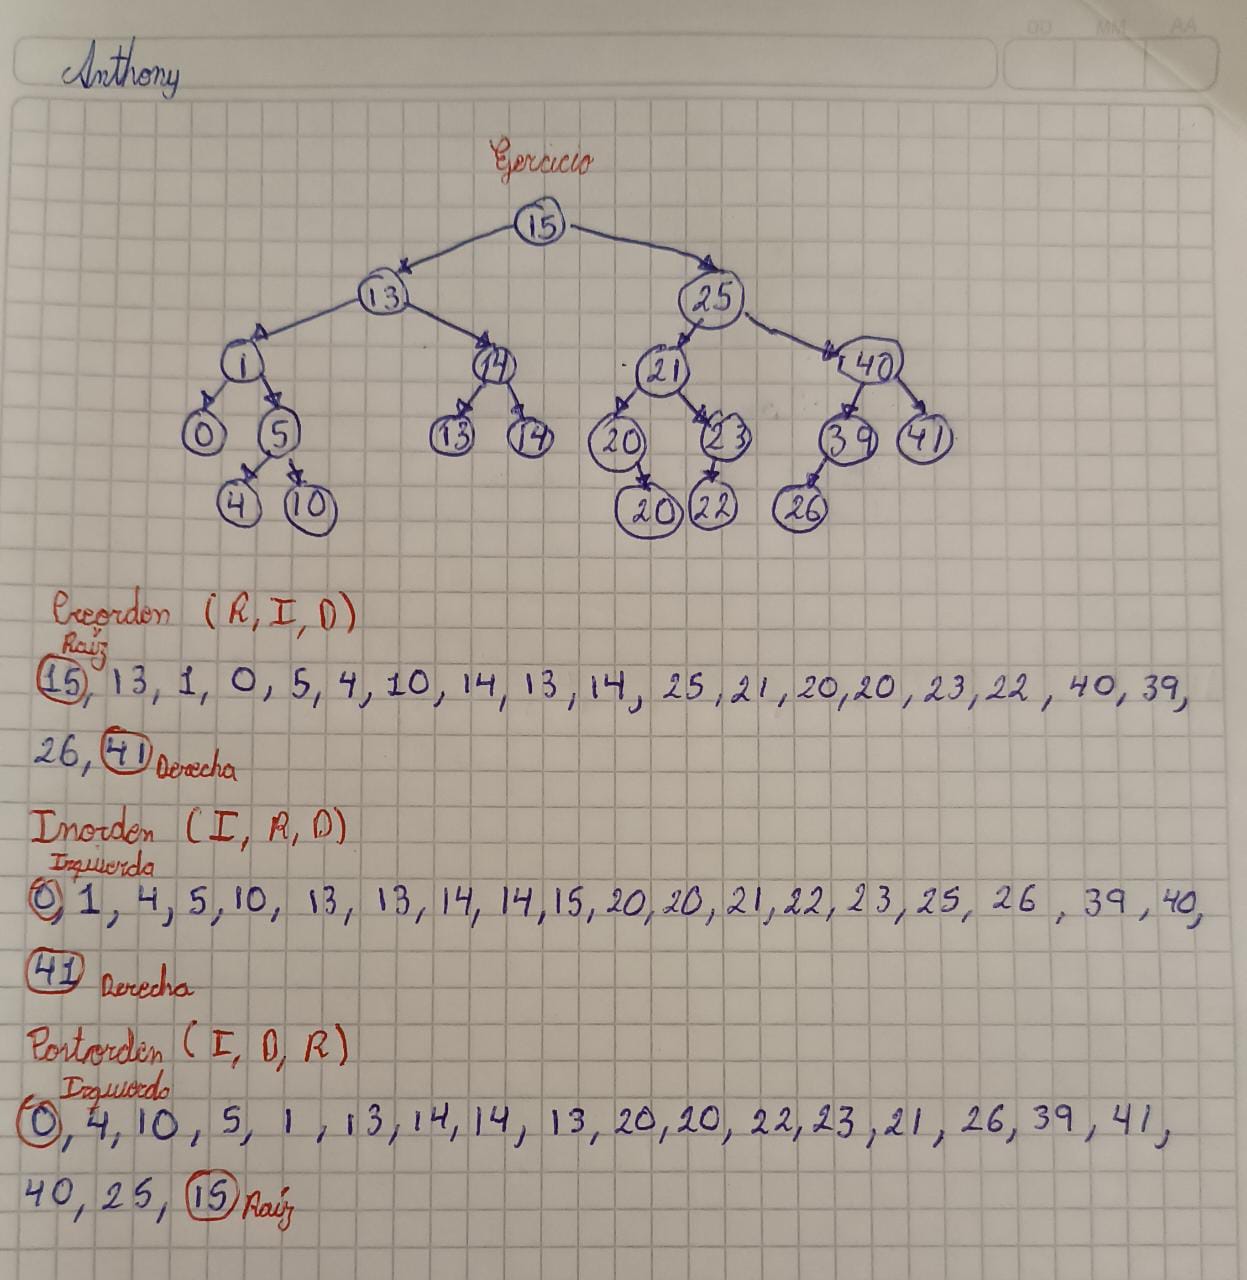 AA MM DD
Anthony
Ejercicio
15
13 25
1 14 21 40
0 5 13 14 20 23 39 41
4 10 20 22 26
Preorden (R, I, D)
Raíz
15, 13, 1, 0, 5, 4, 10, 14, 13, 14, 25, 21, 20, 20, 23, 22, 40, 39,
26, 41 Derecha
Inorden (I, R, D)
Izquierda
0, 1, 4, 5, 10, 13, 13, 14, 14, 15, 20, 20, 21, 22, 23, 25, 26, 39, 40,
41 Derecha
Postorden (I, D, R)
Izquierdo
0, 4, 10, 5, 1, 13, 14, 14, 13, 20, 20, 22, 23, 21, 26, 39, 41,
40, 25, 15 Raíz